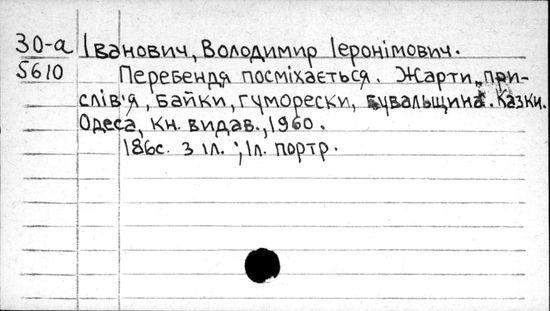 30-а Іванович, Володимир Ієронімович.
5610 Перебендя посміхається. Жарти, при-
слів'я, байки, гуморески, бувальщина. Казки.
Одеса, кн. видав., 1960.
186с. з іл.; 1л. портр.